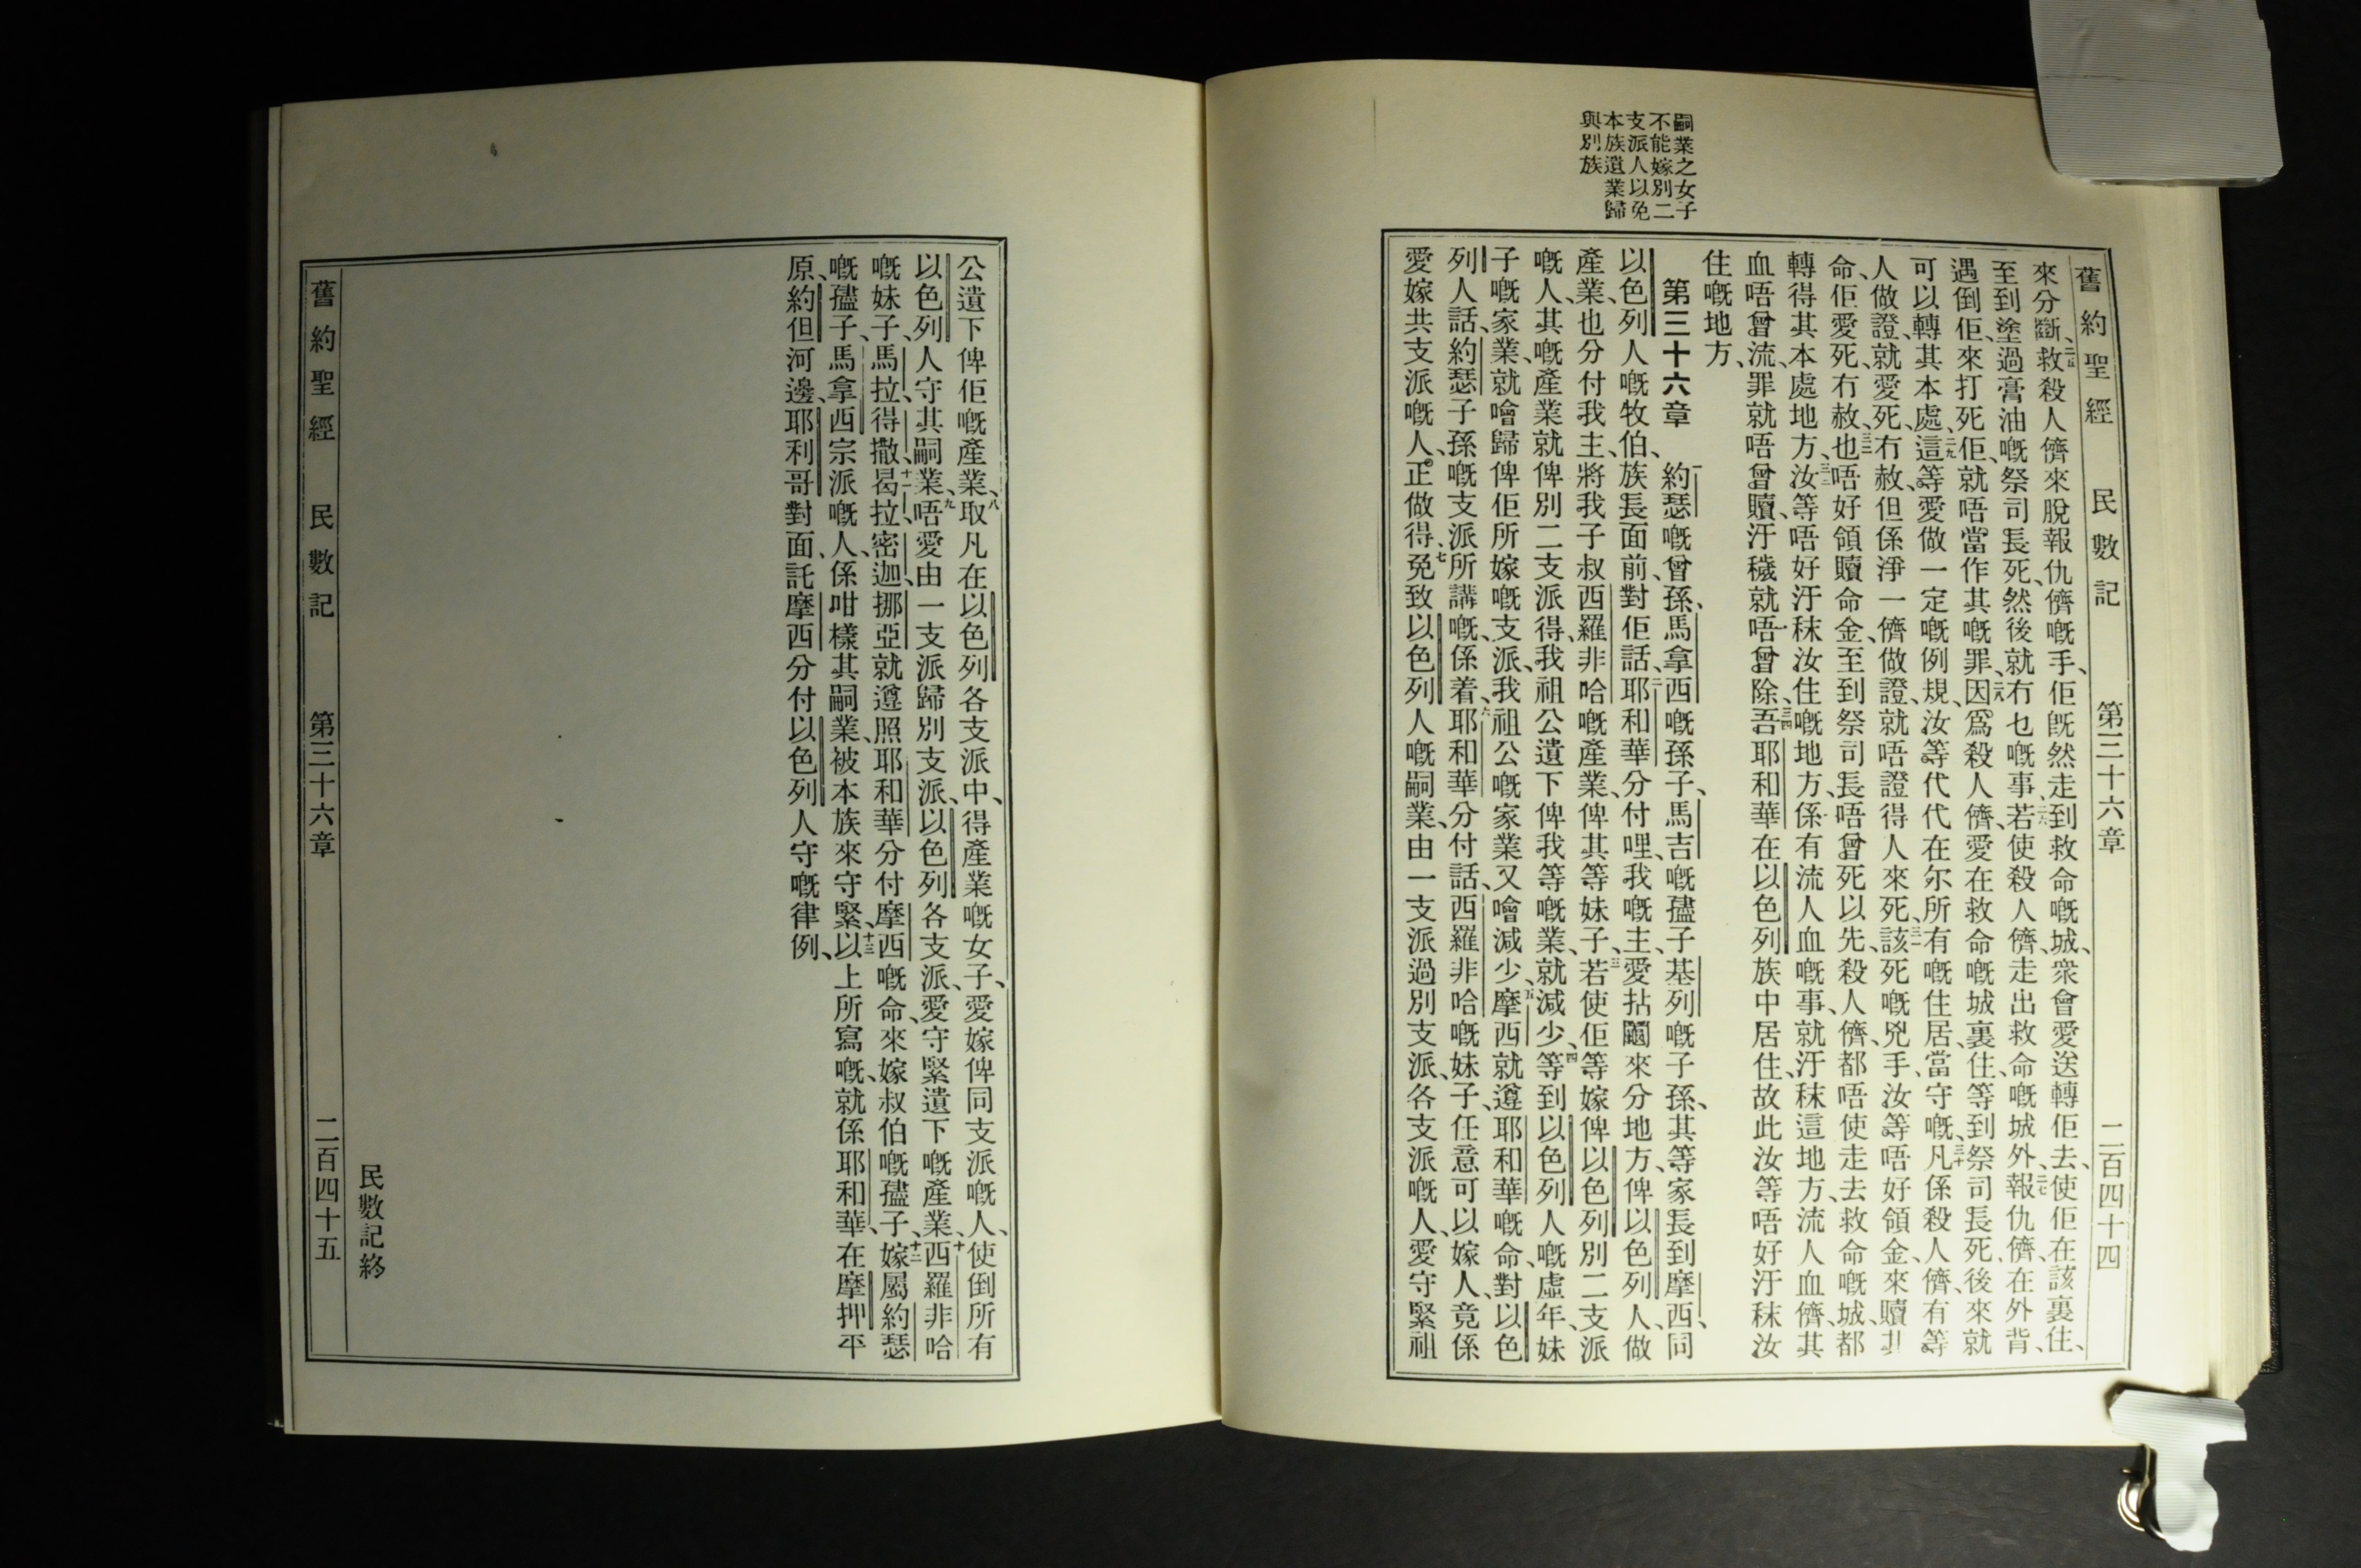 舊約聖經 民數記 第三十六章 二百四十四
來分斷、二五救殺人儕來脫報仇儕嘅手、佢既然走到救命嘅城、衆會愛送轉佢去、使佢在該裏住、
至到塗過膏油嘅祭司長死、然後就冇乜嘅事、二六若使殺人儕、走出救命嘅城外、二七報仇儕、在外背、
遇倒佢、來打死佢、就唔當作其嘅罪、二八因爲殺人儕、愛在救命嘅城裏住、等到祭司長死、後來就
可以轉其本處、二九這等愛做一定嘅例規、汝等代代在尔所有嘅住居、當守嘅、三十凡係殺人儕、有等
人做證、就愛死、冇赦、但係淨一儕做證、就唔證得人來死、三一該死嘅兇手、汝等唔好領金、來贖其
命、佢愛死冇赦、三二也唔好領贖命金、至到祭司長唔曾死以先、殺人儕、都唔使走去救命嘅城、都
轉得其本處地方、三三汝等唔好汙秣汝住嘅地方、係有流人血嘅事、就汙秣這地方、流人血儕、其
血唔曾流、罪就唔曾贖、汙穢就唔曾除、三四吾耶和華在以色列族中居住、故此汝等唔好汙秣汝
住嘅地方、
嗣業之女子
不能嫁別二
支派人以免
本族遺業歸
與別族
第三十六章 一約瑟嘅曾孫、馬拿西嘅孫子、馬吉嘅孻子基列嘅子孫、其等家長到摩西、同
以色列人嘅牧伯、族長面前、對佢話、二耶和華分付哩、我嘅主、愛拈鬮來分地方、俾以色列人、做
產業、也分付我主、將我子叔西羅非哈嘅產業、俾其等妹子、三若使佢等嫁俾以色列別二支派
嘅人、其嘅產業就俾別二支派得、我祖公遺下俾我等嘅業、就減少、四等到以色列人嘅虛年、妹
子嘅家業、就噲歸俾佢所嫁嘅支派、我祖公嘅家業又噲減少、五摩西就遵耶和華嘅命、對以色
列人話、約瑟子孫嘅支派所講嘅、係着、六耶和華分付話、西羅非哈嘅妹子、任意可以嫁人、竟係
愛嫁共支派嘅人、正做得、七免致以色列人嘅嗣業、由一支派過別支派、各支派嘅人、愛守緊祖
公遺下俾佢嘅產業、八取凡在以色列各支派中、得產業嘅女子、愛嫁俾同支派嘅人、使倒所有
以色列人守其嗣業、九唔愛由一支派歸別支派、以色列各支派、愛守緊遺下嘅產業、十西羅非哈
嘅妹子、十一馬拉、得撒、曷拉、密迦、挪亞就遵照耶和華分付摩西嘅命、來嫁叔伯嘅孻子、十二嫁屬約瑟
嘅孻子、馬拿西宗派嘅人、係咁樣其嗣業、被本族來守緊、十三以上所寫嘅、就係耶和華、在摩押平
原、約但河邊、耶利哥對面、託摩西分付以色列人守嘅律例、
民數記終
舊約聖經 民數記 第三十六章 二百四十五